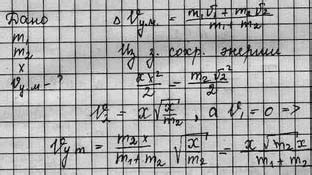 Дано
m₁
m₂
x
v_ц.м - ?
v_ц.м. = (m₁v₁ + m₂v₂)/(m₁ + m₂)
Из з. сохр. энергии
xx²/2 = m₂v₂²/2
v₂ = x√(x/m₂), а v₁ = 0 =>
v_цm = (m₂x/(m₁+m₂)) √(x/m₂) = x√(m₂x)/(m₁+m₂)